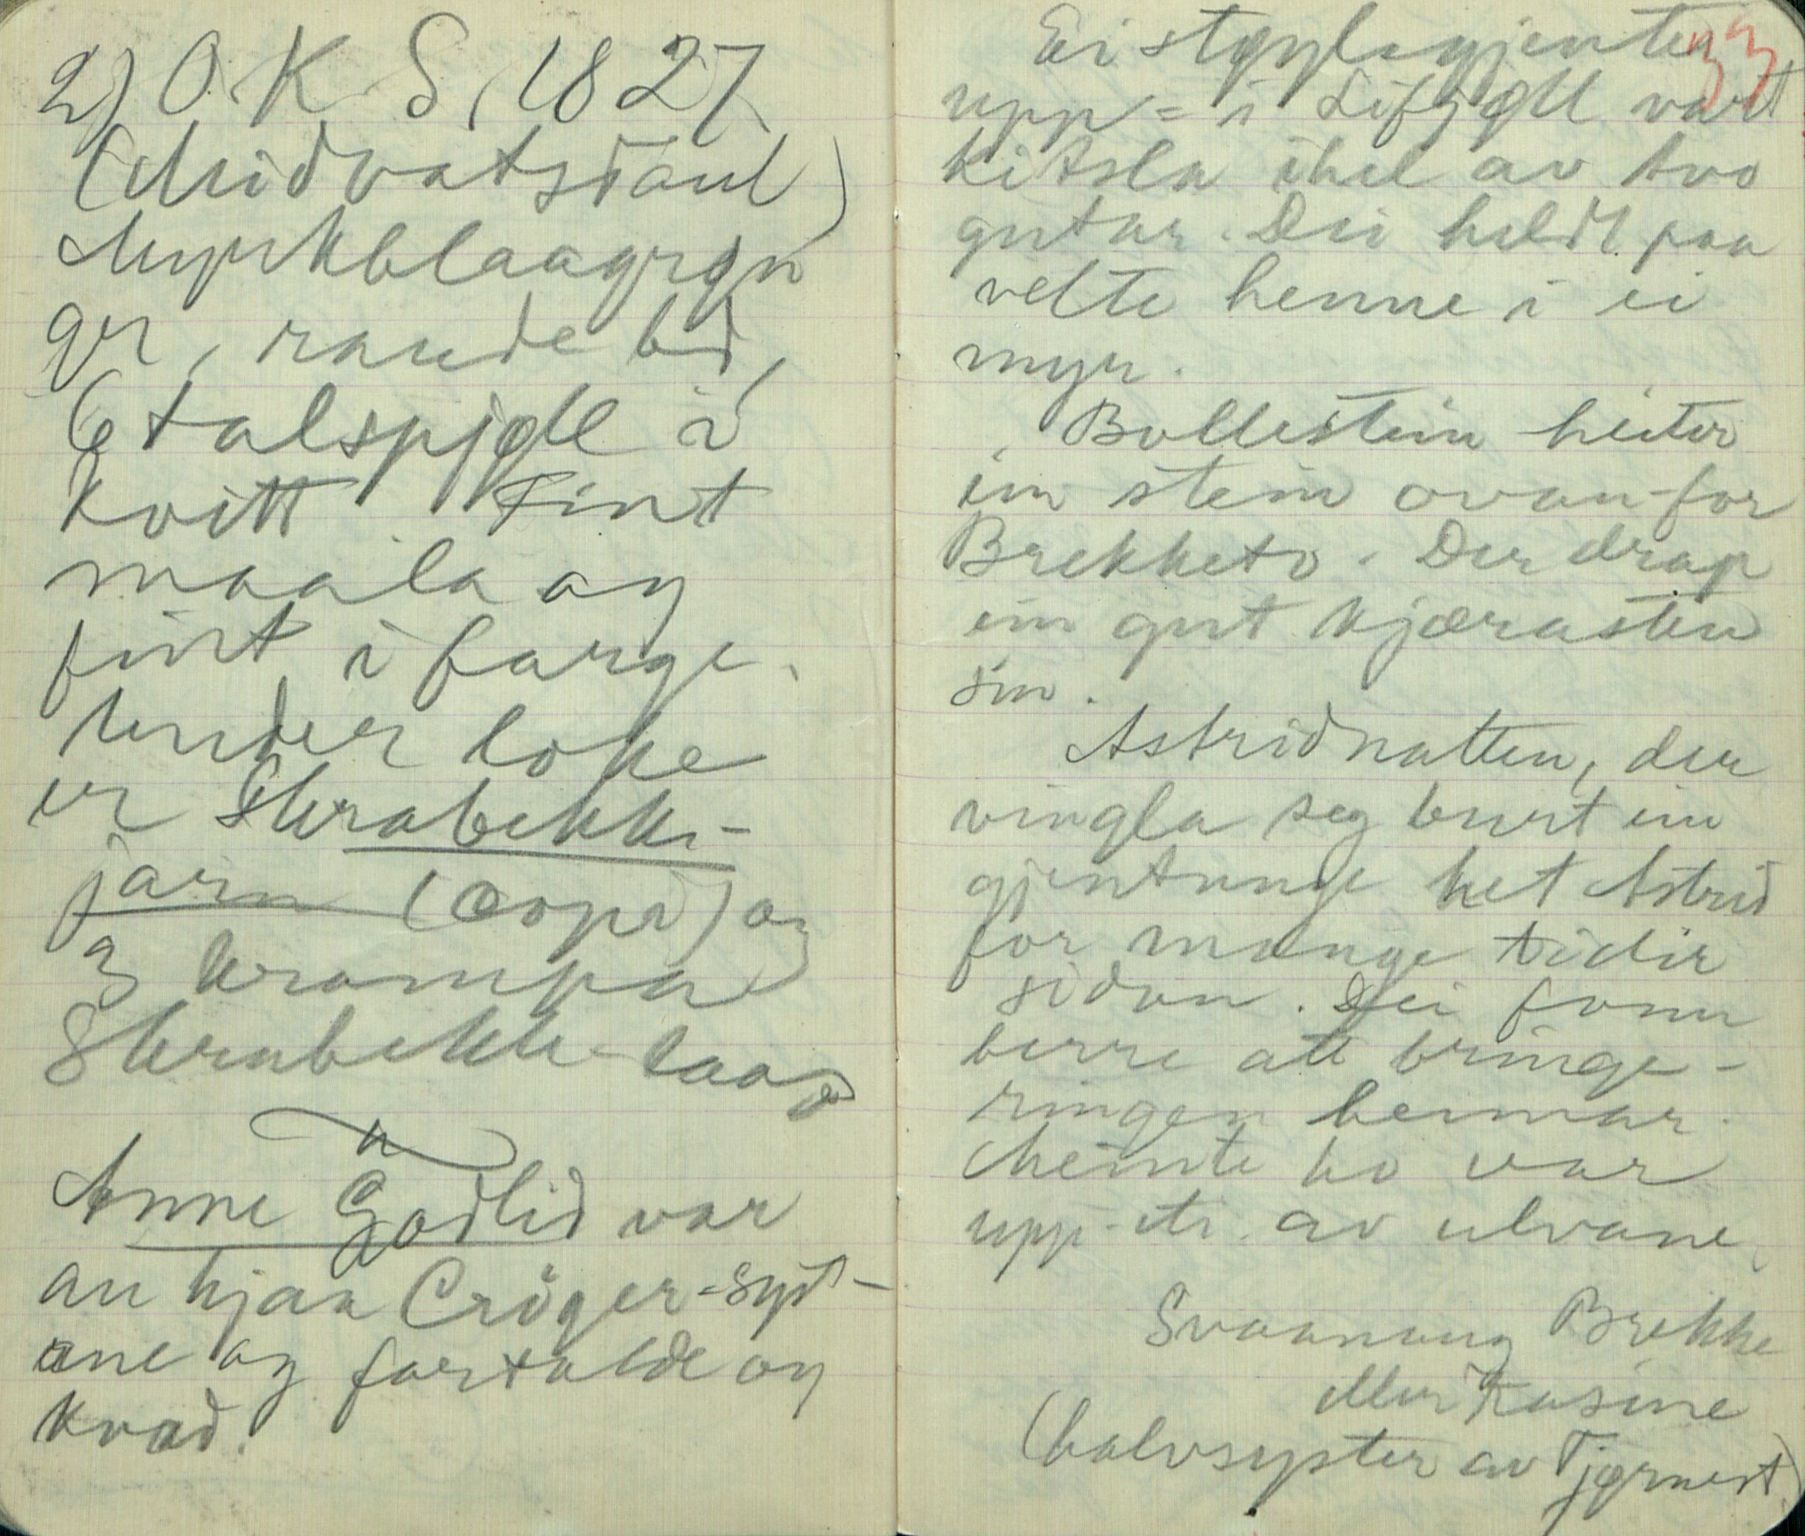 2) O. K. S. 1827
(Midvatsdaul)
Myrkblaagrøn
ger, raude bd,
6 talspjøll i
kvitt Fint
maala og
fint i farge.
Under loke
er Skrabekk-
jarn (oope) og
3 krampar
Skrabekk-laas
Anne Godlid var
au hjaa Crøger-syst-
ane og fortalde og
kvad.
33
Ei støylsgjente
upp-i Lifjøll vart
kitsla ihel av tvo
gutar. Dei heldt paa
velte henne i ei
myr.
Bollestein heiter
ein stein ovanfor
Brekketo. Der drap
ein gut kjærasten
sin.
Astridnatten, der
vingla seg burt ei
gjentunge het Astrid
for mange tidir
sidan. Dei fann
berre att bringe-
ringen hennar.
Meinte ho var
upp-eti av ulvane.
Svaanaug Brekke
Mor Rasine
(halvsyster av Tjønnest)